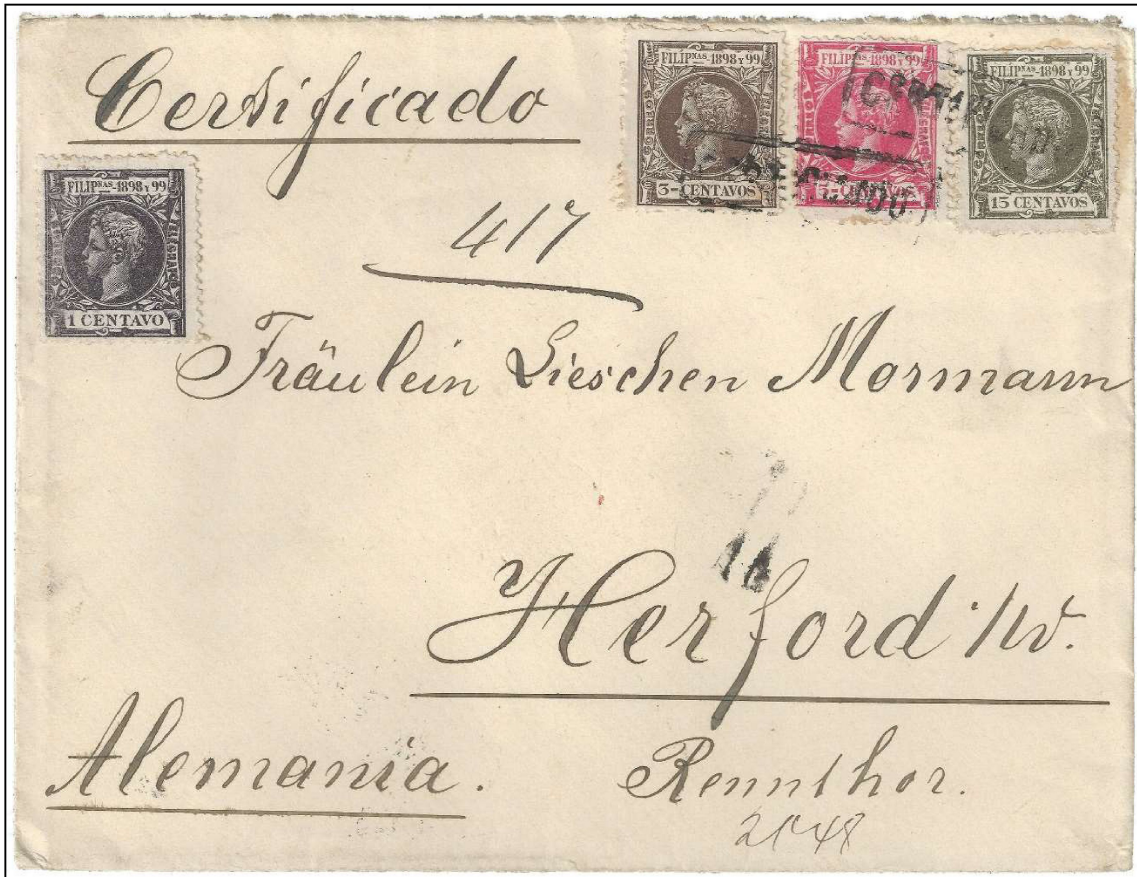 Certificado
FILIPNAS-1898 Y 99
CORREOS
3-CENTAVOS
FILIPNAS-1898 Y 99
5-CENTAVOS
FILIPNAS-1898 Y 99
15 CENTAVOS
FILIPNAS-1898 Y 99
1 CENTAVO
417
Fräulein Lieschen Mormann
Herford i/W.
Alemania.
Rennthor.